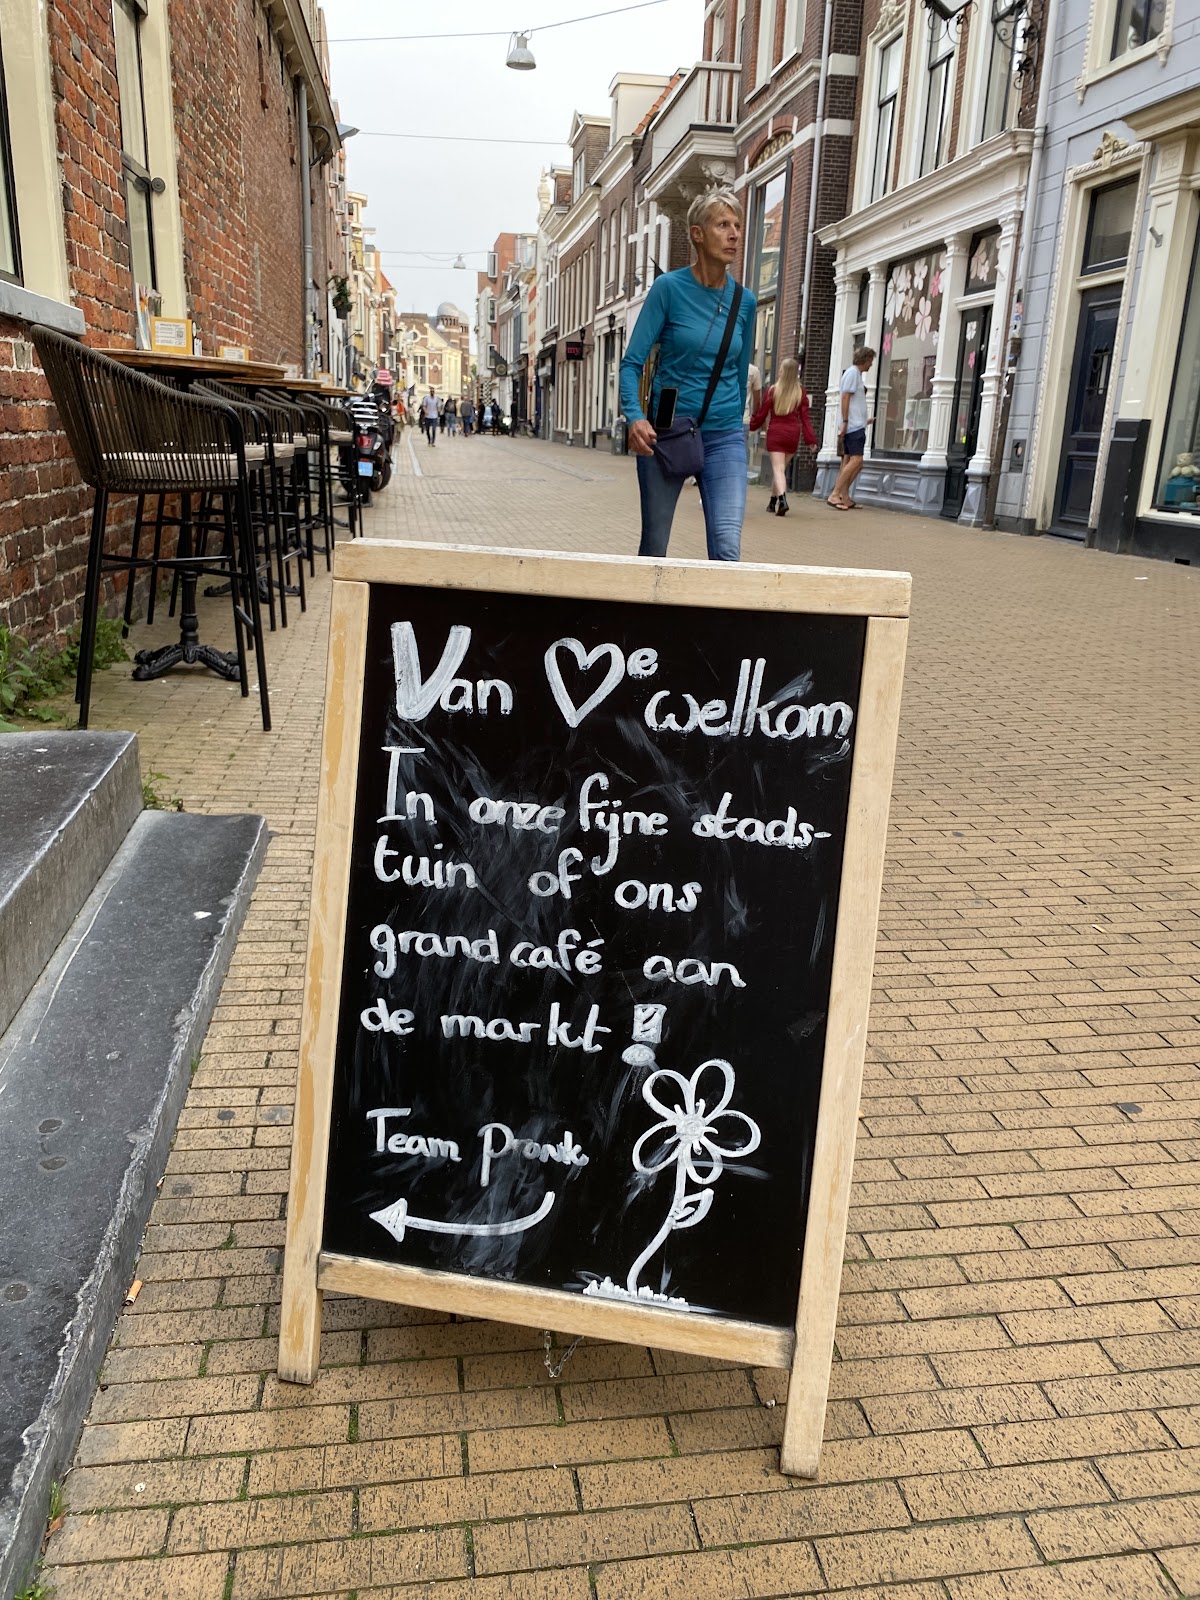 Van ♡e welkom
In onze fijne stads-
tuin of ons
grand café aan
de markt!
Team Pronk